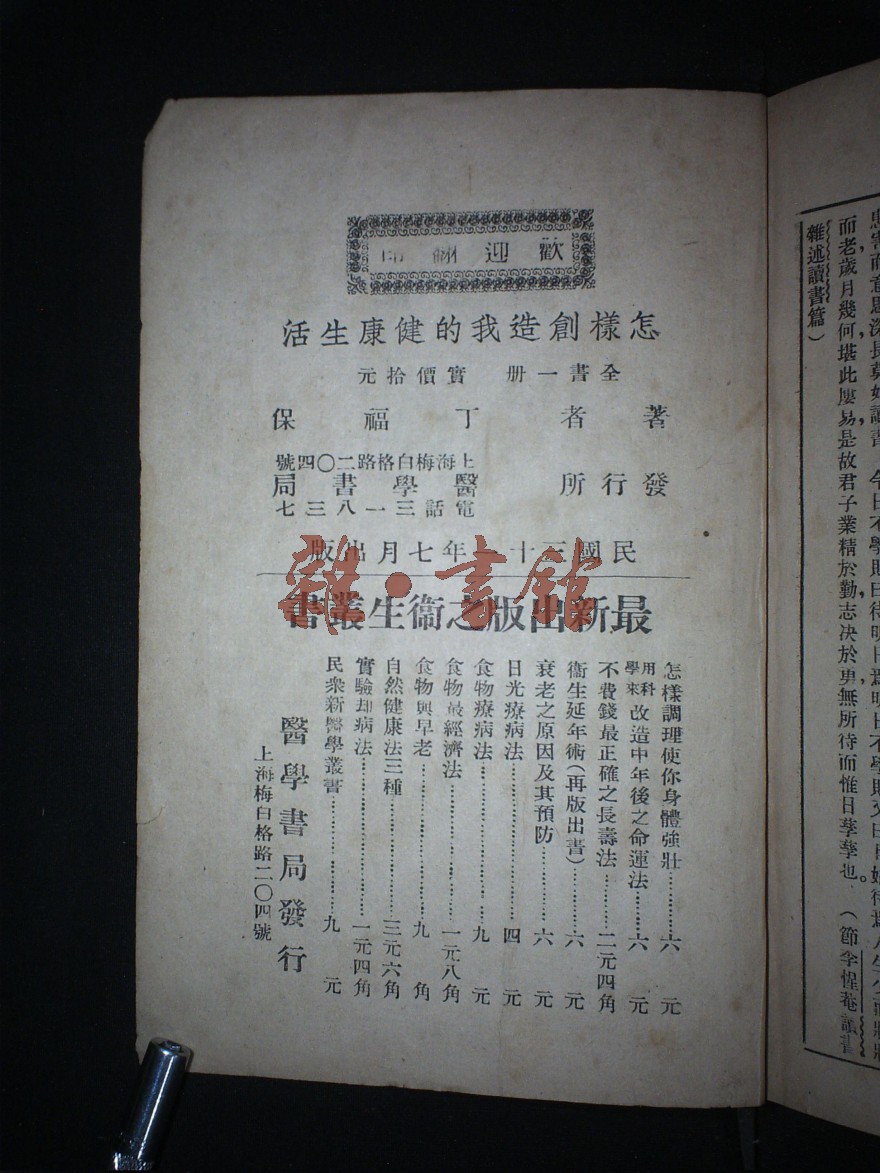 歡迎翻印
怎樣創造我的健康生活
全書一册 實價拾元
著者 丁福保
上海梅白格路二〇四號
發行所 醫學書局
電話三一八三七
民國三十 年七月出版
雜·書館
最新出版之衞生叢書
怎樣調理使你身體強壯…………六元
用科學來改造中年後之命運法………六元
不費錢最正確之長壽法………二元四角
衞生延年術(再版出書)…………六元
衰老之原因及其預防…………六元
日光療病法…………四元
食物療病法…………九元
食物最經濟法…………一元八角
食物與早老…………九角
自然健康法三種…………三元六角
實驗却病法…………一元四角
民衆新醫學叢書…………九元
醫學書局發行
上海梅白格路二〇四號
而老歲月幾何堪此屢易是故君子業精於勤志决於勇無所待而惟日孳孳也。(節李惺菴讀書
雜述讀書篇)